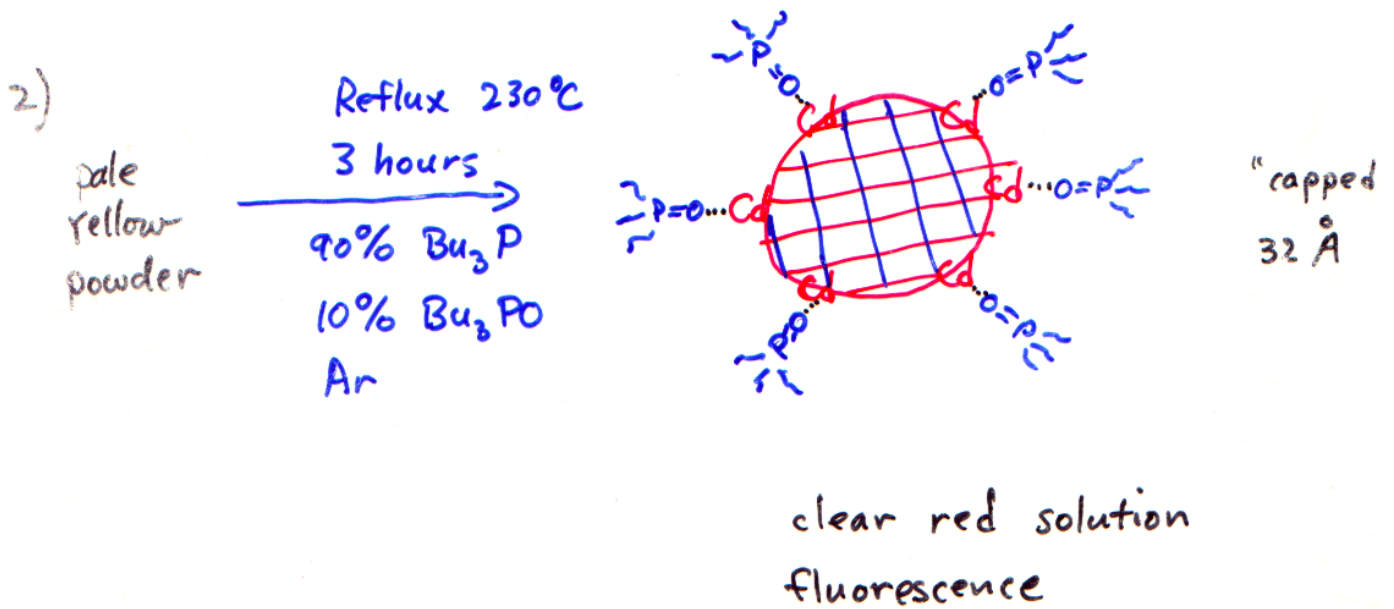 2)
pale
rellow
powder
Reflux 230°C
3 hours
90% Bu₃P
10% Bu₃PO
Ar
P=O···Cd
P=O···Cd
P=O···Cd
Cd···O=P
Cd···O=P
Cd···O=P
"capped
32 Å
clear red solution
fluorescence